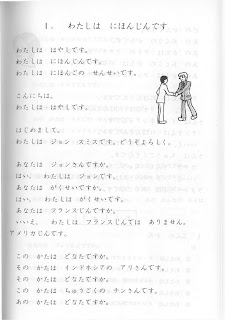 1. わたしは にほんじんです
わたしは はやしです。
わたしは にほんじんです。
わたしは にほんごの せんせいです。
こんにちは。
わたしは はやしです。
はじめまして。
わたしは ジョン スミスです。どうぞよろしく。
あなたは ジョンさんですか。
はい、 わたしは ジョンです。
あなたは がくせいですか。
はい、 わたしは がくせいです。
あなたは フランスじんですか。
いいえ、 わたしは フランスじんでは ありません。
アメリカじんです。
この かたは どなたですか。
その かたは インドネシアの アリさんです。
この かたは どなたですか。
この かたは ちゅうごくの チンさんです。
あの かたは どなたですか。